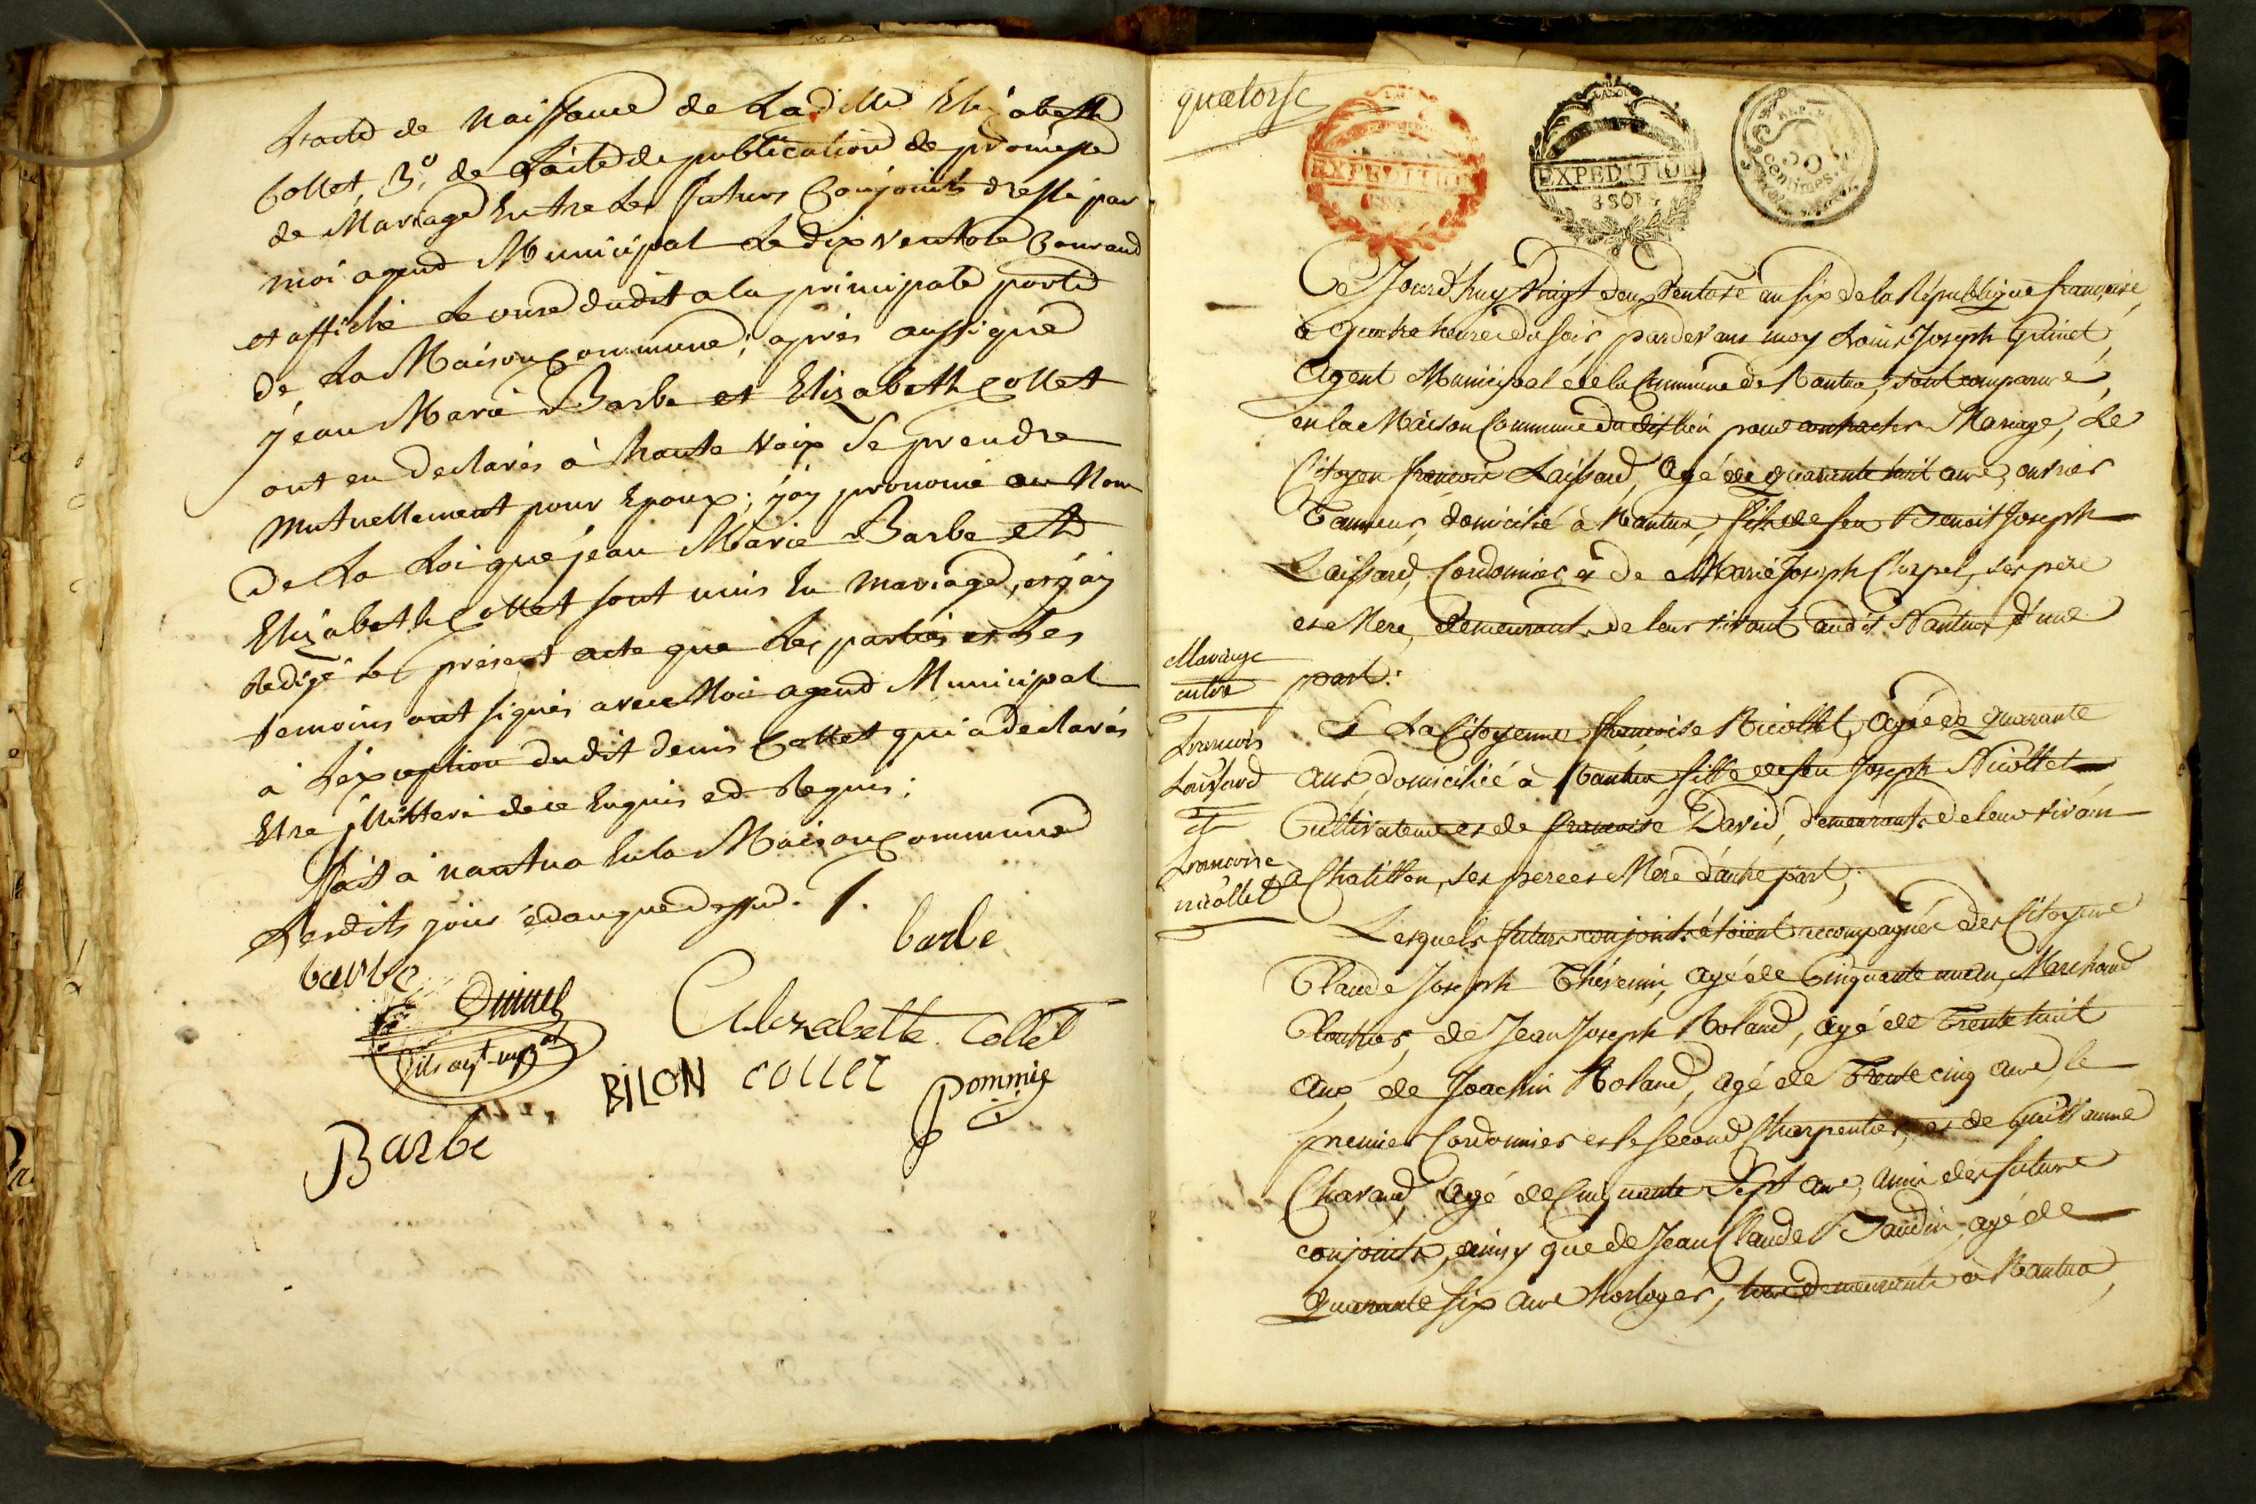 L'acte de Naissance de Ladille Elizabeth
Collet, 3.º de L'acte de publication de promesse
de Mariage Entre Les futurs Conjoints dressé par
moi agend Municipal Le dix ventose Courand
et affiché Le onze dudit a la principale porte
de La Maison Commune; après aussi que
jean Marie Barbe et Elizabeth Collet
ont eu declarés à haute voix Se prendre
Mutuellement pour Epoux; j'ay prononcé au Nom
De La Loi que jean Marie Barbe et
Elizabeth Collet sont unis En mariage, et j'ay
Redigé Le présent acte que Les parties et Les
temoins ont signés avec Moi agend Municipal
à L'exception dudit denis Collet qui a declarés
Etre jllitteré de ce Enquis ed Requis;
fait à nantua En la Maison Commune
Lesdits jour ed an que dessus. /.
barbe
barbe
Quinet
Elezabette Collet
BILON COLLET
pommie
Barbe
quatorse
EXPEDITION
EXPEDITION
3 SOLS
50
centimes
Ce Jourd'huy Vingt deux Ventose an six de la République française,
à Quatre heures du soir, pardevant moy Louis Joseph Quinet,
Agent Municipal de la Commune de Nantua, sont comparus,
en la Maison Commune dudit lieu pour contracter Mariage, Le
Citoyen françois Laissard, agé de quarante huit ans, ouvrier
Tanneur, domicilié à Nantua, fils de feu Benoit Joseph
Laissard, Cordonnier, et de Marie Joseph Clerpel, ses père
et Mère, demeurants de leur vivant audit Nantua, d'une
part.
Mariage
entre
francois
Laissard
et
francoise
nicollet
Et La Citoyenne françoise Nicollet, agée de quarante
ans, domiciliée à Nantua, fille de feu Joseph Nicollet
Cultivateur et de françoise David, demeurants de leur vivan
a Chatillon, ses pere et Mère d'autre part;
Lesquels futurs conjoints étoient accompagnés des Citoyens
Claude Joseph Thévenin, agé de Cinquante un an, Marchand
Cloutier, de Jean Joseph Roland, agé de Trente huit
ans, de Joachin Roland, agé de Trente cinq ans, le
premier Cordonnier et le second Charpentier, et de Guillaume
Chavand, agé de Cinquante Sept ans, amis des futurs
conjoints, ainsy que de Jean Claude Baudin, agé de
Quarante six ans horloger, tous demeurants à Nantua,